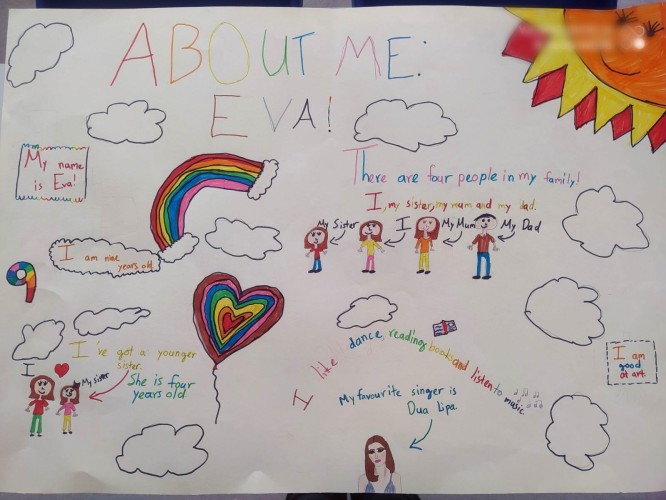 ABOUT ME:
EVA!
My name
is Eva!
There are four people in my family!
I, my sister, my mum and my dad.
My Sister
I
My Mum
My Dad
I am nine
years old.
9
I've got a younger
sister.
She is four
years old
I
My sister
I like dance, reading books and listen to music
My favourite singer is
Dua Lipa
I am
good
at art.